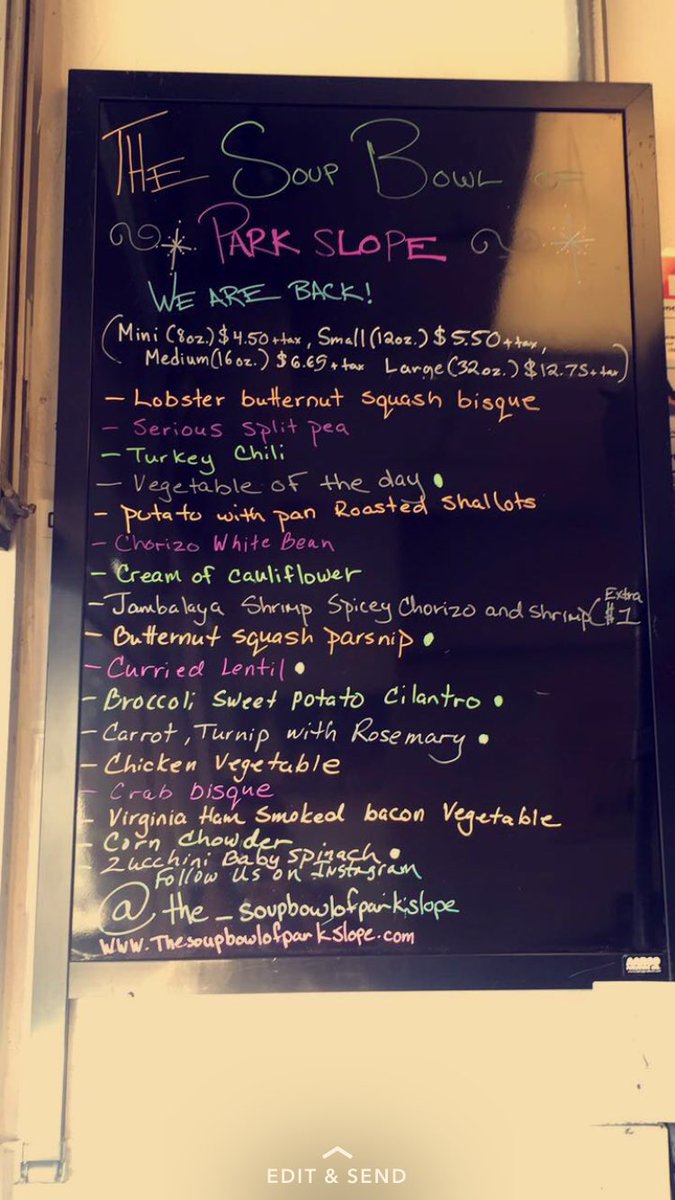 THE SOUP BOWL OF
PARK SLOPE
WE ARE BACK!
(Mini (8oz.) $4.50 + tax, Small (12oz.) $5.50 + tax,
Medium (16oz.) $6.65 + tax Large (32oz.) $12.75 + tax)
- Lobster butternut squash bisque
- Serious split pea
- Turkey Chili
- Vegetable of the day •
- potato with pan Roasted Shallots
- Chorizo White Bean
- Cream of cauliflower
- Jambalaya Shrimp Spicey Chorizo and shrimp (Extra $1
- Butternut squash parsnip •
- Curried Lentil •
- Broccoli Sweet potato Cilantro •
- Carrot, Turnip with Rosemary •
- Chicken Vegetable
- Crab bisque
- Virginia Ham Smoked bacon Vegetable
- Corn Chowder
- Zucchini Baby Spinach •
Follow us on Instagram
@the_soupbowlofparkslope
www.Thesoupbowlofparkslope.com
EDIT & SEND